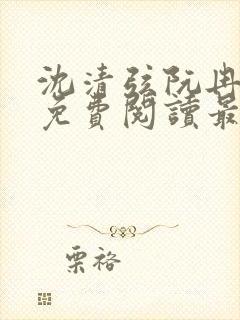 沈清弦阮冉
免費閱讀最
栗裕